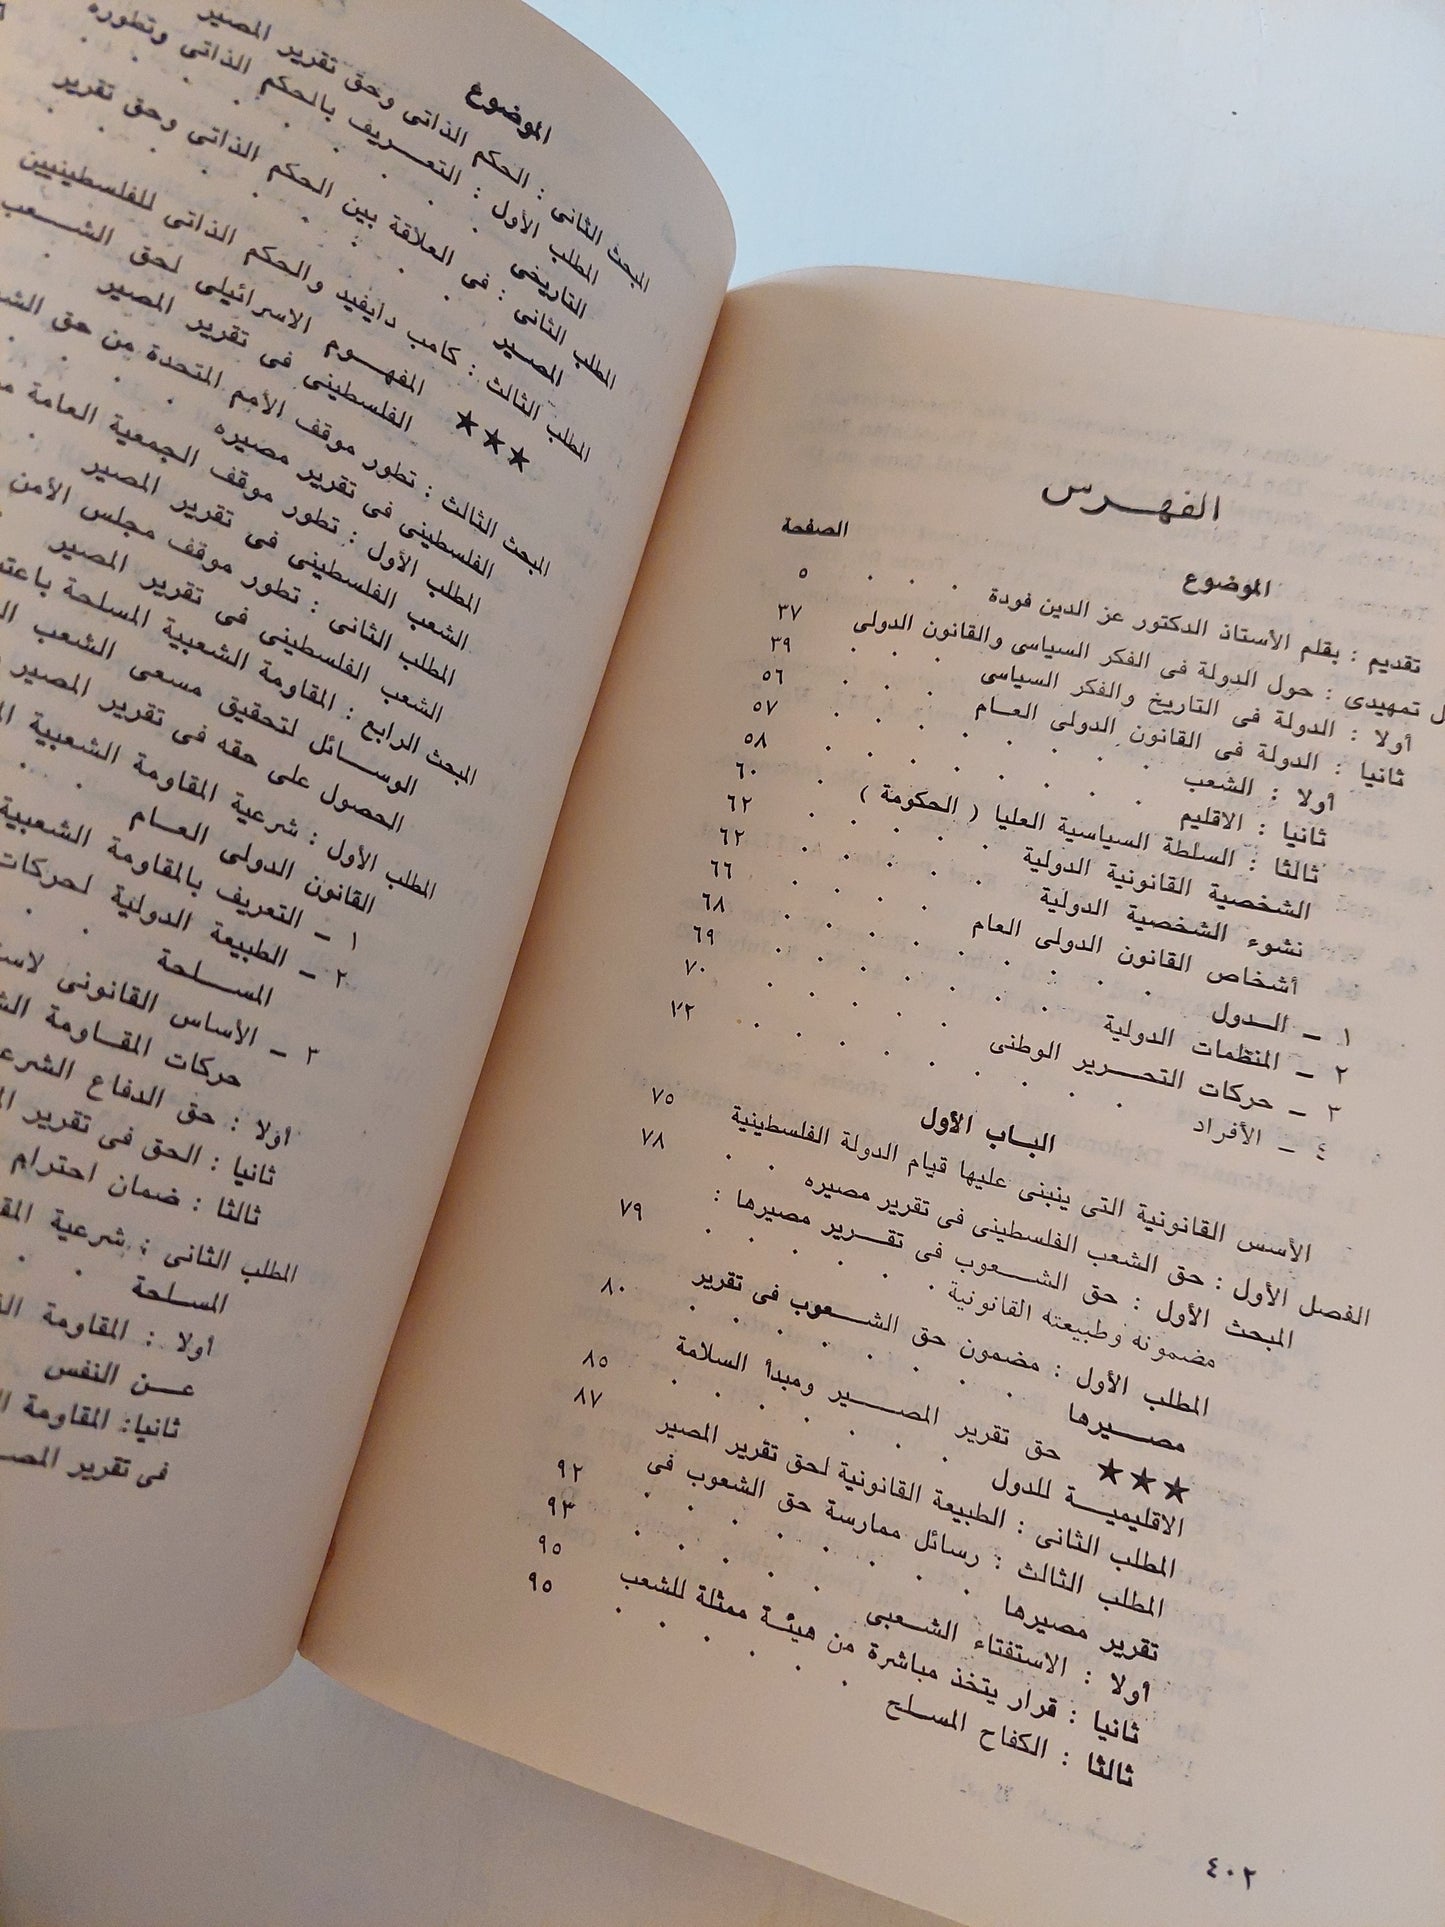 الفهـــرس
الموضوع
الصفحة
تقديم : بقلم الأستاذ الدكتور عز الدين فودة . . . . ٥
تمهيدى : حول الدولة فى الفكر السياسى والقانون الدولى ٣٧
أولا : الدولة فى التاريخ والفكر السياسى . . . ٣٩
ثانيا : الدولة فى القانون الدولى العــام . . . ٥٦
أولا : الشعب . . . . . . . ٥٧
ثانيا : الاقليم . . . . . . . ٥٨
ثالثا : السلطة السياسية العليا ( الحكومة ) . ٦٠
الشخصية القانونية الدولية . . . . . ٦٢
نشوء الشخصية الدولية . . . . . ٦٢
أشخاص القانون الدولى العام . . . . ٦٦
١ ــ الــدول . . . . . . . ٦٨
٢ ــ المنظمات الدولية . . . . . ٦٩
٣ ــ حركات التحـــرير الوطنى . . . . ٧٠
٤ ــ الأفراد . . . . . . . ٧٢
البــاب الأول
الأسس القانونية التى ينبنى عليها قيام الدولة الفلسطينية ٧٥
الفصل الأول : حق الشعب الفلسطينى فى تقرير مصيره . . ٧٨
المبحث الأول : حق الشـــعوب فى تقـــرير مصيرها :
مضمونه وطبيعته القانونية . . . . . . ٧٩
المطلب الأول : مضمون حق الشـــعوب فى تقرير
مصـــيرها . . . . . . . ٨٠
★★★ حق تقرير المصـــير ومبدأ السلامة
الاقليميـــة للدول . . . . . . ٨٥
المطلب الثانى : الطبيعة القانونية لحق تقرير المصير ٨٧
المطلب الثالث : رسائل ممارسة حق الشعوب فى
تقرير مصيرها . . . . . . ٩٢
أولا : الاستفتاء الشــعبى . . . . ٩٣
ثانيا : قرار يتخذ مباشرة من هيئــة ممثلة للشعب ٩٥
ثالثا : الكفاح المســلح . . . . . ٩٥
٤٠٢
الموضوع
المبحث الثانى : الحكم الذاتى وحق تقرير المصير
المطلب الأول : التعــريف بالحكم الذاتى وتطوره
التاريخى
المطلب الثانى : فى العلاقة بين الحكم الذاتى وحق تقرير
المصــير
المطلب الثالث : كامب دايفيد والحكم الذاتى للفلسطينيين
★★★ المفهـــوم الاسرائيلى لحق الشـــعب
الفلسطينى فى تقرير المصير
المبحث الثالث : تطور موقف الأمم المتحدة من حق
الفلسطينى فى تقرير مصيره
المطلب الأول : تطور موقف الجمعية العامة
الشعب الفلسطينى فى تقرير المصير
المطلب الثانى : تطور موقف مجلس الأمن
الشعب الفلسطينى فى تقرير المصير
المبحث الرابع : المقاومة الشعبية المسلحة
الوســـائل لتحقيق مسعى الشعب
الحصول على حقه فى تقرير المصير
المطلب الأول : شرعية المقاومة الشعبية
القانون الدولى العــام
١ ــ التعريف بالمقاومة الشعبية
٢ ــ الطبيعة الدولية لحركات
المســـلحة
٣ ــ الأساس القانونى
حركات المقــاومة
أولا : حق الدفاع
ثانيا : الحق فى تقرير
ثالثا : ضمان احترام
المطلب الثانى : شرعية
المســلحة
أولا : المقاومة
عـــن النفس
ثانيا: المقاومة
فى تقرير